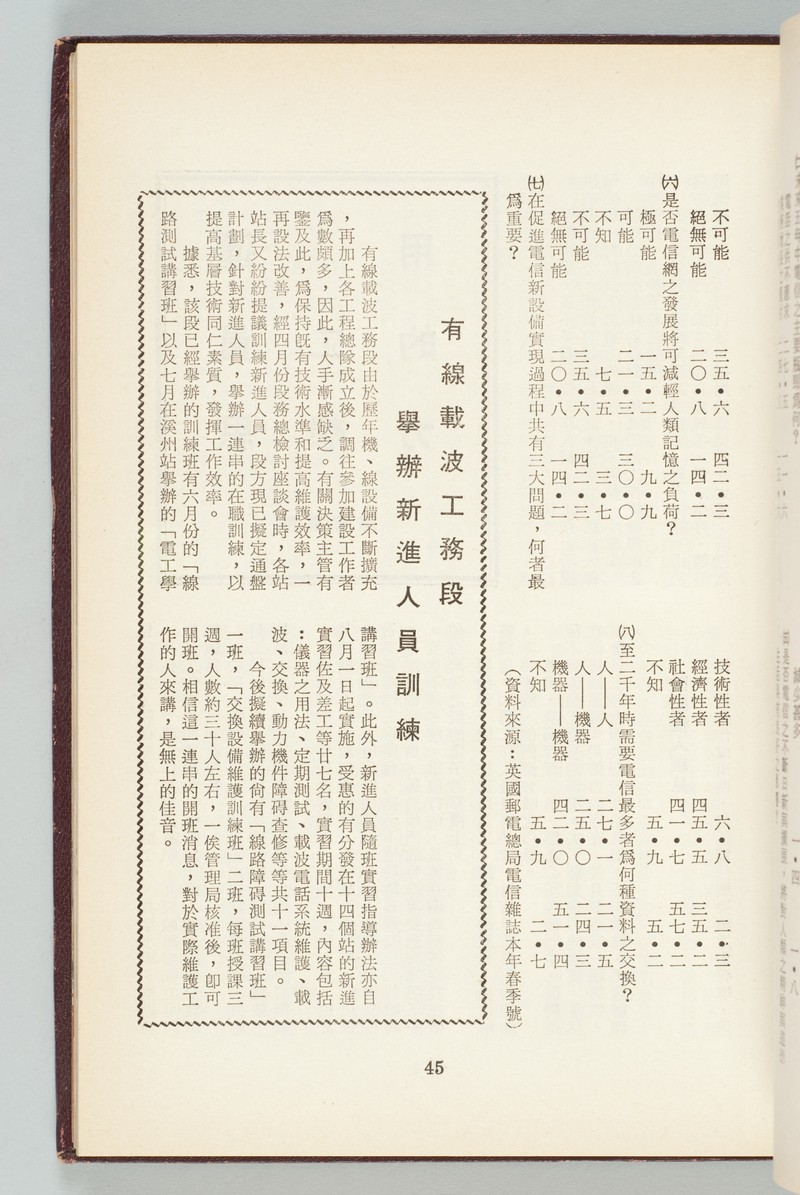 不可能　三五・六　四二・三
絕無可能　二〇・八　一四・二
㈥是否電信網之發展將可減輕人類記憶之負荷？
極可能　一五・二　九・九
可能　二一・三　三〇・〇
不知　七・五　三・七
不可能　三五・六　四二・三
絕無可能　二〇・八　一四・二
㈦在促進電信新設備實現過程中共有三大問題，何者最
爲重要？
技術性者　六・八　二・三
經濟性者　四五・五　三五・二
社會性者　四一・七　五七・二
不知　五・九　五・二
㈧至二千年時需要電信最多者爲何種資料之交換？
人——人　二七・一　二一・五
人——機器　二五・〇　二四・三
機器——機器　四二・〇　五一・四
不知　五・九　二・七
（資料來源：英國郵電總局電信雜誌本年春季號）
有線載波工務段
舉辦新進人員訓練
有線載波工務段由於歷年機、線設備不斷擴充
，再加上各工程總隊成立後，調往參加建設工作者
爲數頗多，因此，人手漸感缺乏。有關決策主管有
鑒及此，爲保持旣有技術水準和提高維護效率，一
再設法改善，經四月份段務總檢討座談會時，各站
站長又紛紛提議訓練新進人員，段方現已擬定通盤
計劃，針對新進人員，舉辦一連串的在職訓練，以
提高基層技術同仁素質，發揮工作效率。
據悉，該段已經舉辦的訓練班有六月份的「線
路測試講習班」以及七月在溪州站舉辦的「電工學
講習班」。此外，新進人員隨班實習指導辦法亦自
八月一日起實施，受惠的有分發在十四個站的新進
實習佐及差工等廿七名，實習期間十週，內容包括
：儀器之用法、定期測試、載波電話系統維護、載
波、交換、動力機件障碍查修等等共十一項目。
今後擬續舉辦的尙有「線路障碍測試講習班」
一班，「交換設備維護訓練班」二班，每班授課三
週，人數約三十人左右，一俟管理局核准後，卽可
開班。相信這一連串的開班消息，對於實際維護工
作的人來講，是無上的佳音。
45